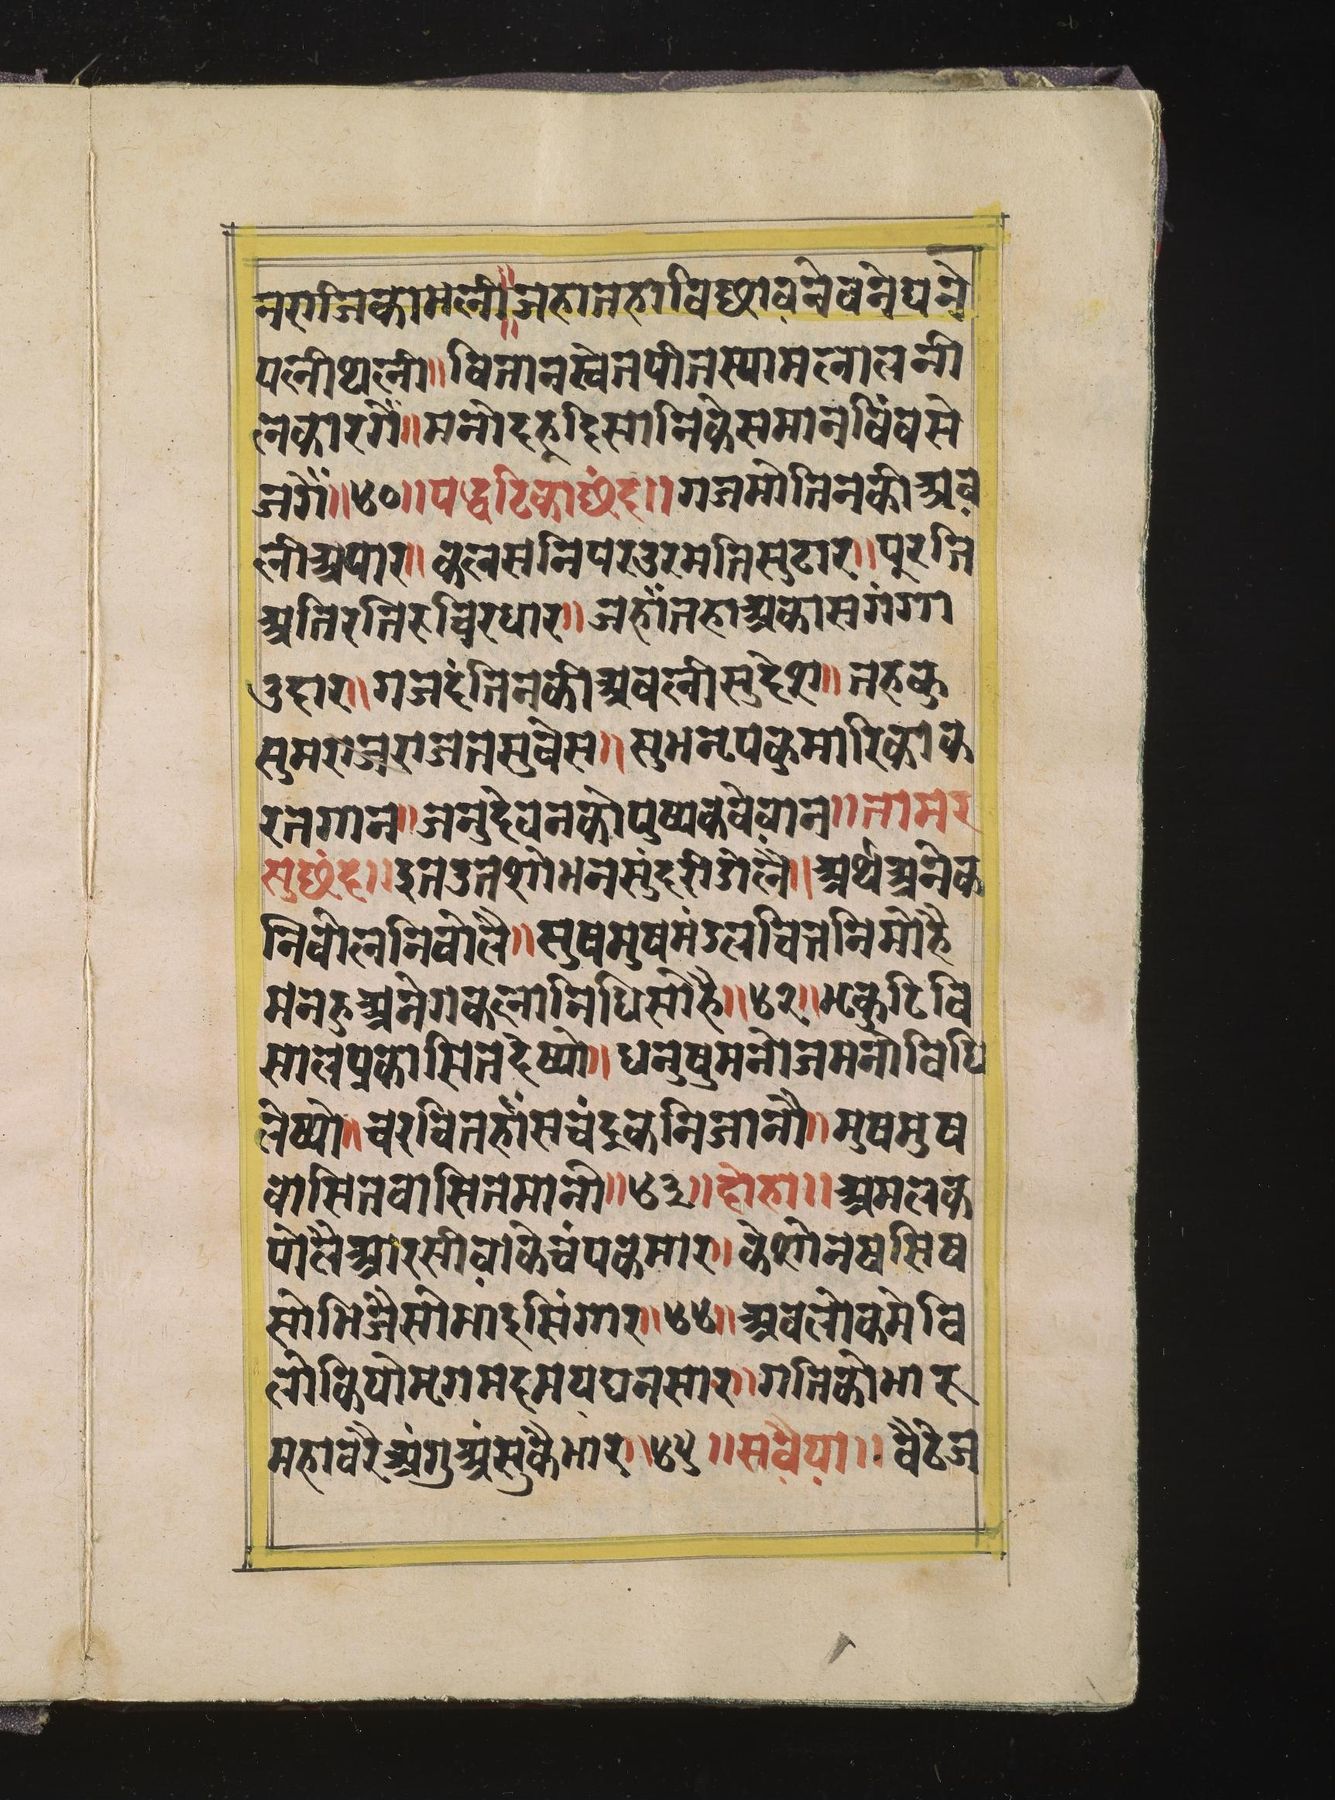 नराजिकामली॥जहातहाविछावनेवनेघने
घलीथली॥वितानस्वेतपीतस्यामलालनी
लकारगैं॥मनौदहूदिसानिकेसमानविंवसे
जगैं॥४०॥पद्धटिकाछंद॥गजमोतिनकीअव
लीअपार॥कलसनिपरउरमतिसुढार॥पूरति
अतिरतिरुचिरधार॥जहाँतहाअकासगंगा
उदार॥गजदंतिनकीअवलीसुदेश॥तहकु
सुमराजराजतसुवेस॥सुभनृपकुमारिकाक
रतगान॥जनुदेवनकोपुष्पकवेवान॥तामर
सुछंद॥इतउतशोभनसुंदरीडोलैं॥अर्थअनेक
निवोलनिवोलै॥सुषमुषमंडलचितनिमोहै
मनहुअनेगकलानिधिसोहै॥४२॥भृकुटिवि
सालप्रकासितदेष्यो॥धनुषुमनोजमनोविधि
लेष्यो॥चरचितहाँसचंदुकनिजानौ॥मुषमुष
वासितवासितमानो॥४३॥दोहा॥अमलक
पोलैआरसीवाकेचंपकमार।केशोनषसिष
सोभिजैसोमांदुसिंगार॥४४॥अवलोकमेवि
लोकियोमृगमदमयघनसार॥गतिकोभारू
महावरैअंगुअंसुकैभार॥४५॥सवैया॥वैठेज